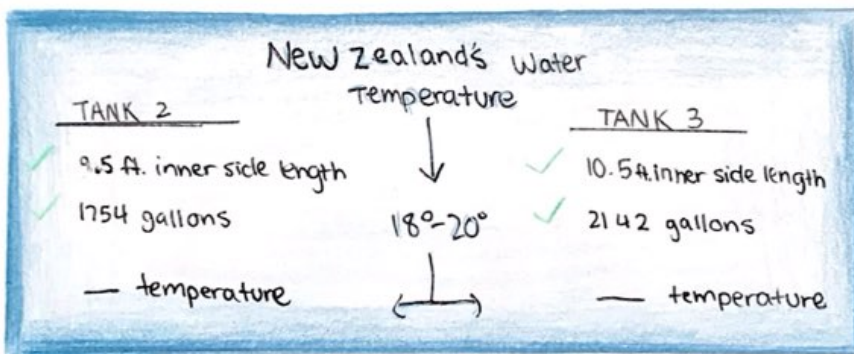 New Zealand's Water
Temperature
TANK 2
9.5 ft. inner side length
1754 gallons
— temperature
18°-20°
TANK 3
10.5 ft. inner side length
2142 gallons
— temperature